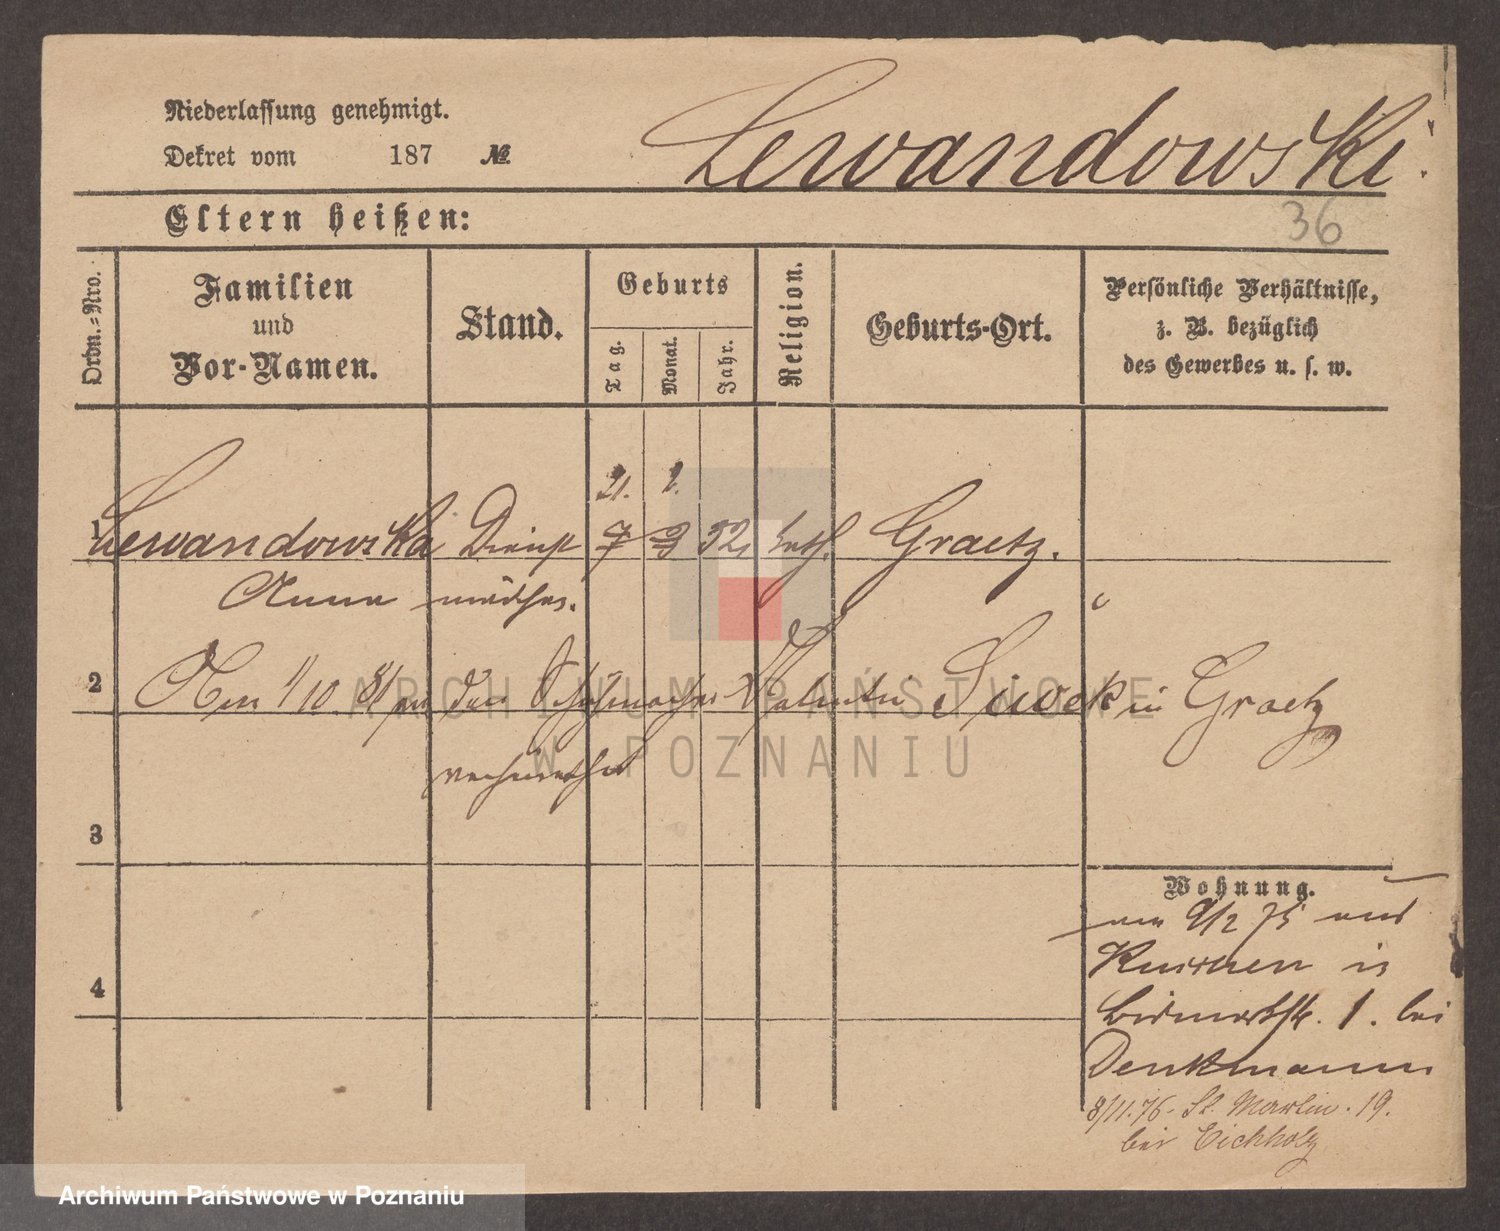 Niederlassung genehmigt.
Dekret vom 187 №
Lewandowski.
Eltern heißen:
36
Ordn.-Nro.
Familien
und
Vor-Namen.
Stand.
Geburts
Tag.
Monat.
Jahr.
Religion.
Geburts-Ort.
Persönliche Verhältnisse,
z. B. bezüglich
des Gewerbes u. s. w.
21. 2.
1 Lewandowska Dienst 7 3 52, kath. Graetz.
Anna mädchen.
2 Am 1/10. 81 an den Schuhmacher Valentin Siwek in Graetz
verheirathet
3
4
Wohnung.
am 9/2 75 aus
in
Bismarkstr. 1. bei
Denkmann
8/11.76. St. Martin. 19.
bei Eichholz
ARCHIWUM PAŃSTWOWE
W POZNANIU
Archiwum Państwowe w Poznaniu